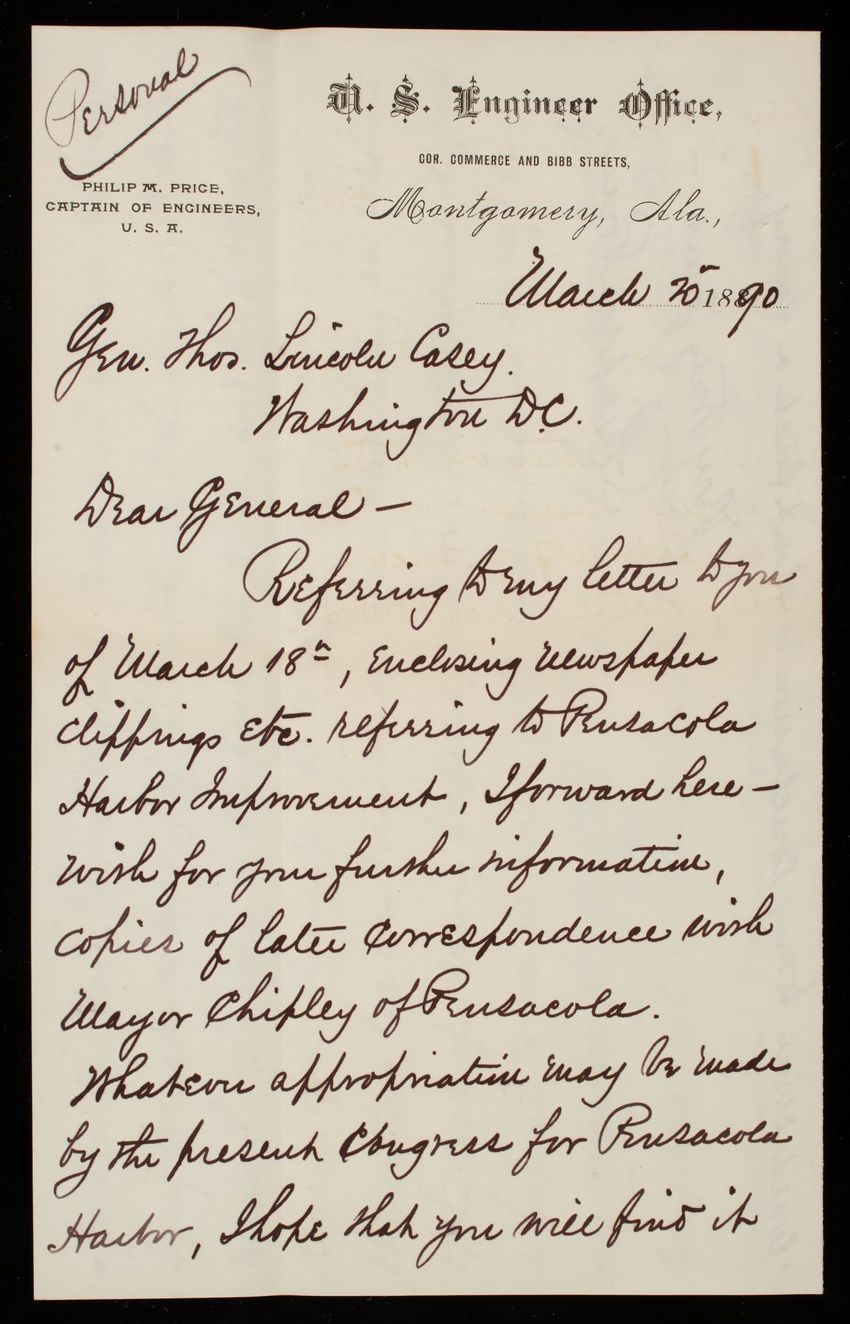 Personal
U. S. Engineer Office,
COR. COMMERCE AND BIBB STREETS,
PHILIP M. PRICE,
CAPTAIN OF ENGINEERS,
U. S. A.
Montgomery, Ala.,
March 20 1890
Gen. Thos. Lincoln Casey.
Washington D.C.
Dear General —
Referring to my letter to you
of March 18th, enclosing newspaper
clippings etc. referring to Pensacola
Harbor Improvement, I forward here-
with for your further information,
copies of later correspondence with
Mayor Chipley of Pensacola.
Whatever appropriation may be made
by the present Congress for Pensacola
Harbor, I hope that you will find it